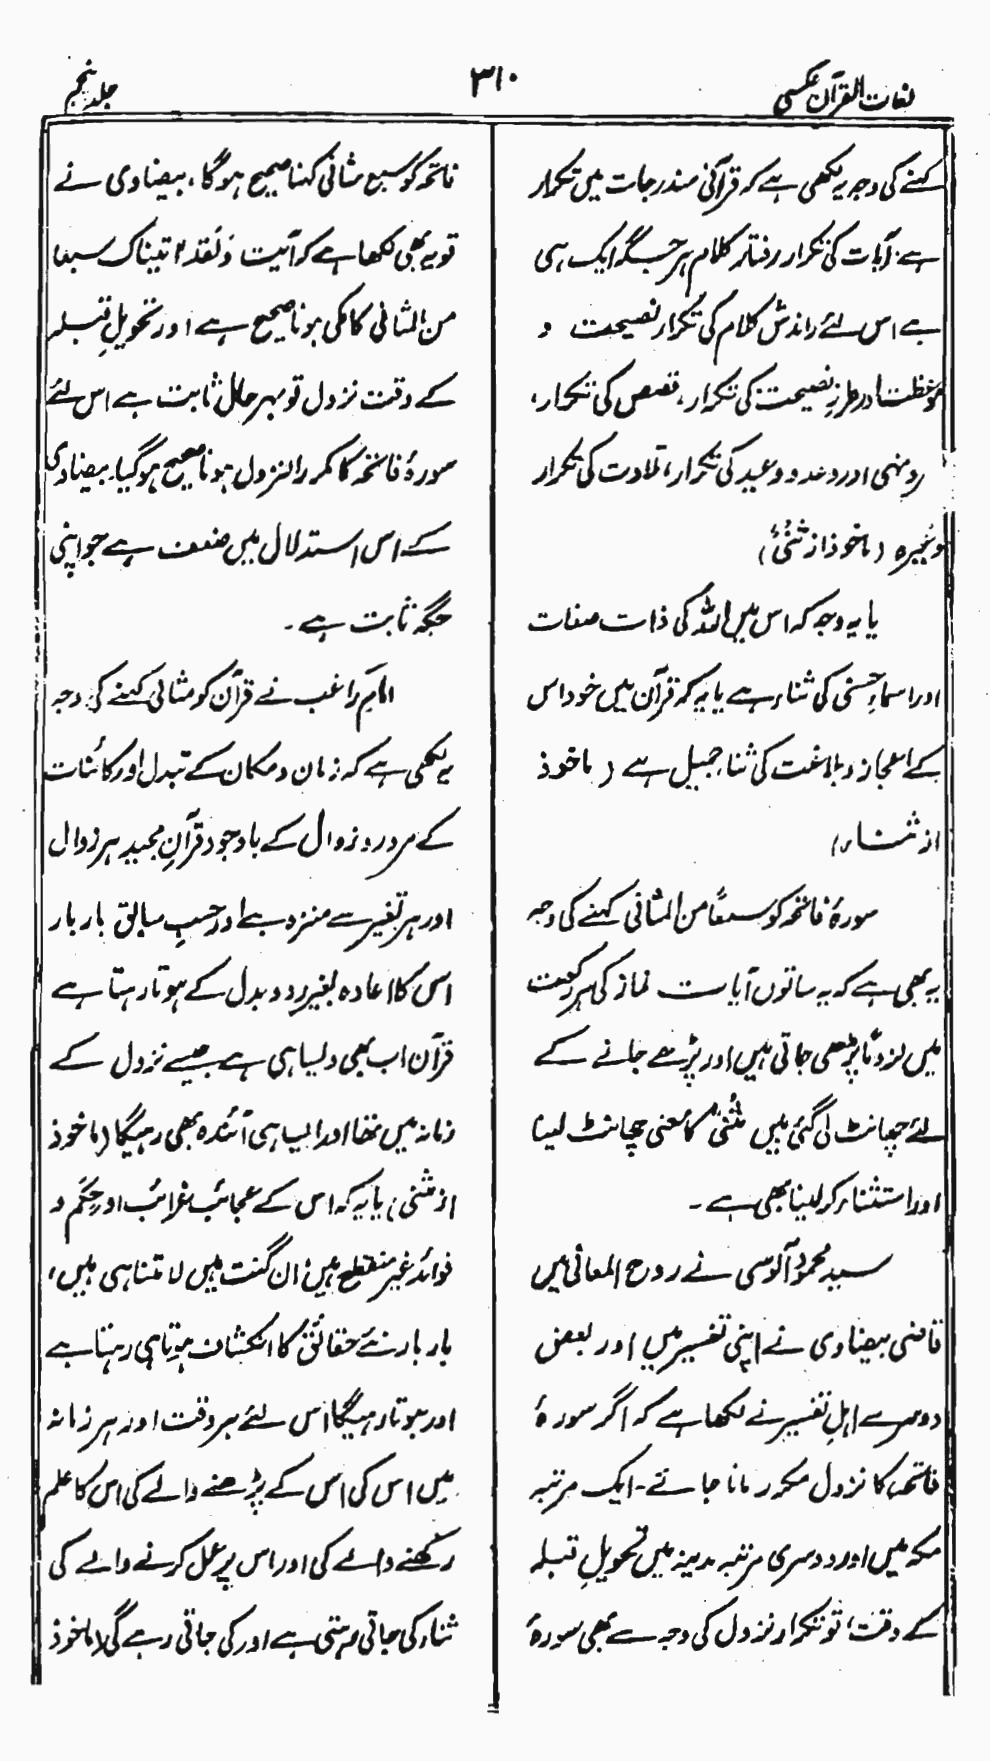 لغات القرآن عکسی
۳۱۰
جلد پنجم
کہنے کی وجہ یہ لکھی ہے کہ قرآنی مندرجات میں تکرار
ہے۔ آیات کی تکرار رفتار کلام ہر جگہ ایک ہی
ہے اس لئے راندش کلام کی تکرار نصیحت و
موعظت اور طرزِ نصیحت کی تکرار، قصص کی تکرار،
و نہی اور وعدہ و وعید کی تکرار، تلاوت کی تکرار
وغیرہ (ماخوذ از ثنیٌ)
یا یہ وجہ کہ اس میں اللہ کی ذات صفات
اور اسماءِ حسنیٰ کی ثناء ہے یا یہ کہ قرآن میں خود اس
کے اعجاز و بلاغت کی ثناء جمیل ہے (ماخوذ
از ثناء)
سورۂ فاتحہ کو سبعًا من المثانی کہنے کی وجہ
یہ بھی ہے کہ یہ ساتوں آیات نماز کی ہر رکعت
میں لزومًا پڑھی جاتی ہیں اور پڑھے جانے کے
لئے چھانٹ لی گئی ہیں ثنیٌ کا معنی چھانٹ لینا
اور استثناء کر لینا بھی ہے۔
سید محمود آلوسی نے روح المعانی میں
قاضی بیضاوی نے اپنی تفسیر میں اور بعض
دوسرے اہلِ تفسیر نے لکھا ہے کہ اگر سورۂ
فاتحہ کا نزول مکرر مانا جائے۔ ایک مرتبہ
مکہ میں اور دوسری مرتبہ مدینہ میں تحویلِ قبلہ
کے وقت، تو تکرار نزول کی وجہ سے بھی سورۂ
فاتحہ کو سبع مثانی کہنا صحیح ہوگا، بیضاوی نے
تو یہ بھی لکھا ہے کہ آیت وَلَقَدْ اٰتیناک سبعا
من المثانی کا مکی ہونا صحیح ہے اور تحویلِ قبلہ
کے وقت نزول تو بہرحال ثابت ہے اس لئے
سورۂ فاتحہ کا مکرر النزول ہونا صحیح ہوگیا۔ بیضاوی
کے اس استدلال میں ضعف ہے جو اپنی
جگہ ثابت ہے۔
امام راغب نے قرآن کو مثانی کہنے کی وجہ
یہ لکھی ہے کہ زمان و مکان کے تبدل اور کائنات
کے مرور و زوال کے باوجود قرآنِ مجید ہر زوال
اور ہر تغیر سے منزہ ہے اور حسبِ سابق بار بار
اس کا اعادہ بغیر رد و بدل کے ہوتا رہتا ہے
قرآن اب بھی ویسا ہی ہے جیسے نزول کے
زمانہ میں تھا اور ایسا ہی آئندہ بھی رہیگا (ماخوذ
از ثنی) یا یہ کہ اس کے عجائب غرائب اور حِکَم و
فوائد غیر منقطع ہیں، ان گنت ہیں لا متناہی ہیں،
بار بار نئے حقائق کا انکشاف ہوتا ہی رہتا ہے
اور ہوتا رہیگا اس لئے ہر وقت اور ہر زمانہ
میں اس کی اس کے پڑھنے والے کی اس کا علم
رکھنے والے کی اور اس پر عمل کرنے والے کی
ثناء کی جاتی رہتی ہے اور کی جاتی رہے گی (ماخوذ